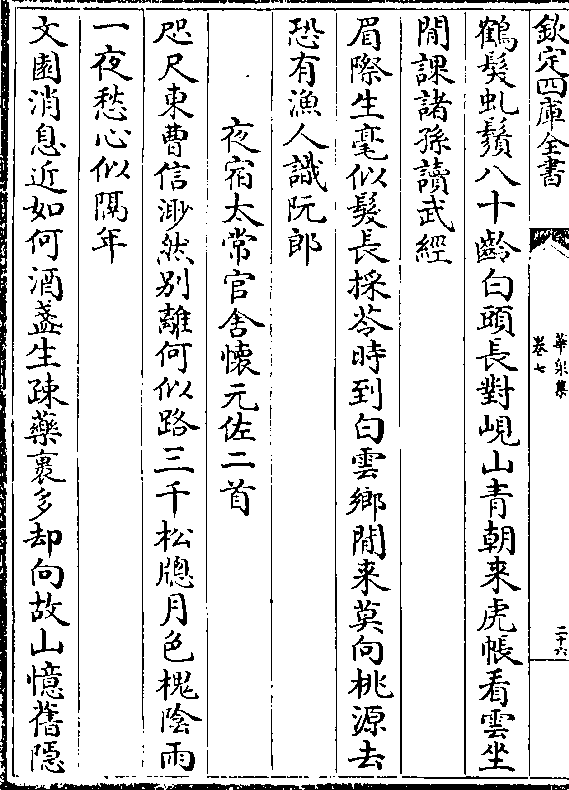 欽定四庫全書
華泉集
卷七
二十六
鶴髮虬鬚八十齡白頭長對峴山青朝來虎帳看雲坐
閒課諸孫讀武經
眉際生毫似髮長採苓時到白雲鄉閒来莫向桃源去
恐有漁人識阮郎
夜宿太常官舍懷元佐二首
咫尺東曹信渺然别離何似路三千松牕月色槐陰雨
一夜愁心似隔年
文園消息近如何酒盞生疎藥裹多却向故山憶舊隱